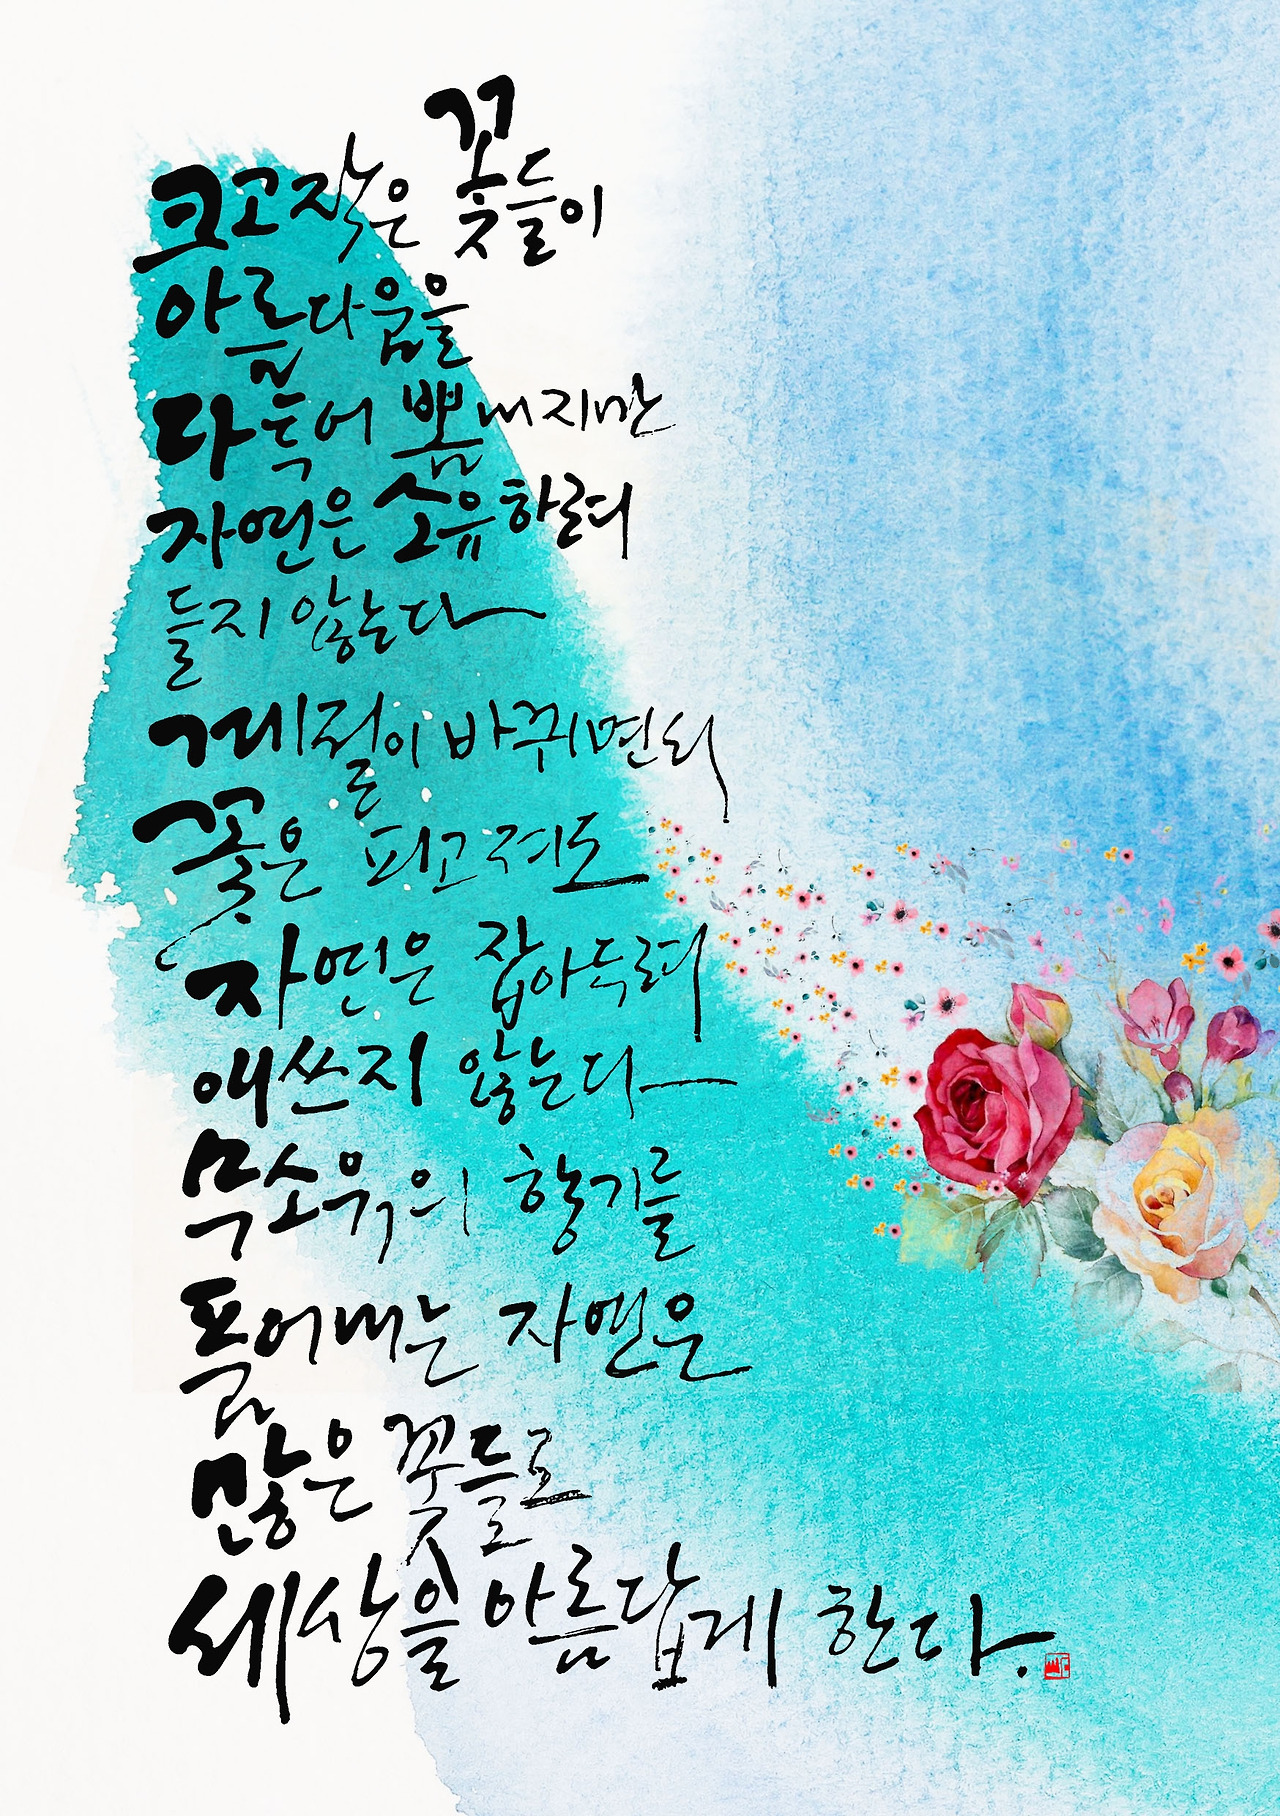 크고 작은 꽃들이
아름다움을
다투어 뽐내지만
자연은 소유하려
들지 않는다
계절이 바뀌면서
꽃은 피고 져도
자연은 잡아두려
애쓰지 않는다
무소유의 향기를
품어내는 자연은
많은 꽃들로
세상을 아름답게 한다.